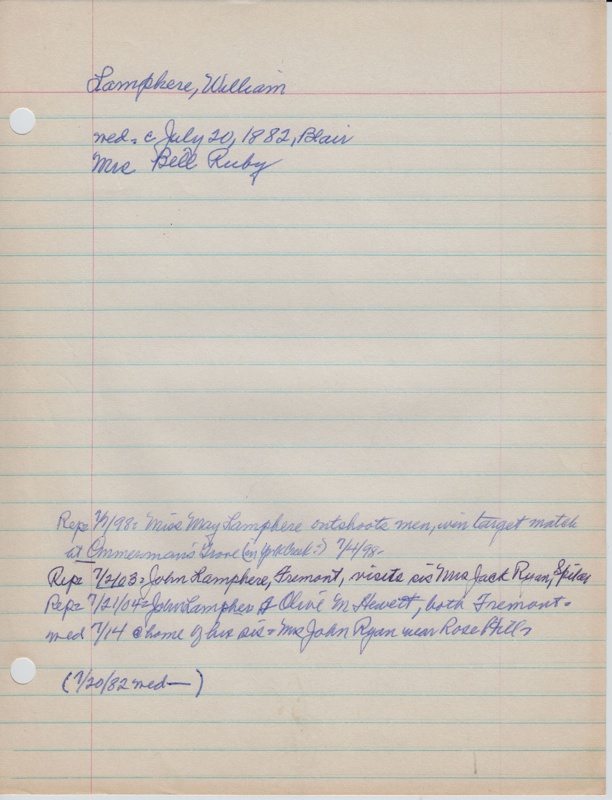 Lamphere, William
wed. c July 20, 1882, Blair
Mrs Bell Ruby
Rep: 7/7/98: Miss May Lamphere outshoots men, win target match
at Ammerman's Grove (on York Creek?) 7/4/98-
Rep: 7/2/03: John Lamphere, Fremont, visits sis Mrs Jack Ryan, Spiker
Rep: 7/21/04: John Lampher & Olive M Hewett, both Fremont-
wed 7/14 @ home of his sis - Mrs John Ryan near Rose Hill
(7/20/82 wed—)